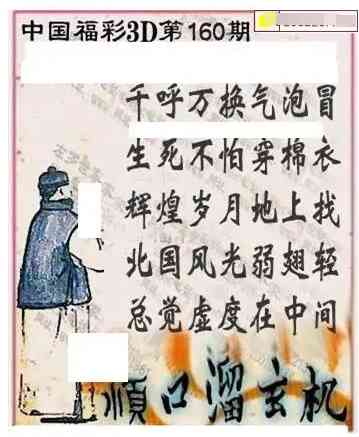 中国福彩3D第160期
千呼万换气泡冒
生死不怕穿棉衣
辉煌岁月地上找
北国风光弱翅轻
总觉虚度在中间
顺口溜玄机